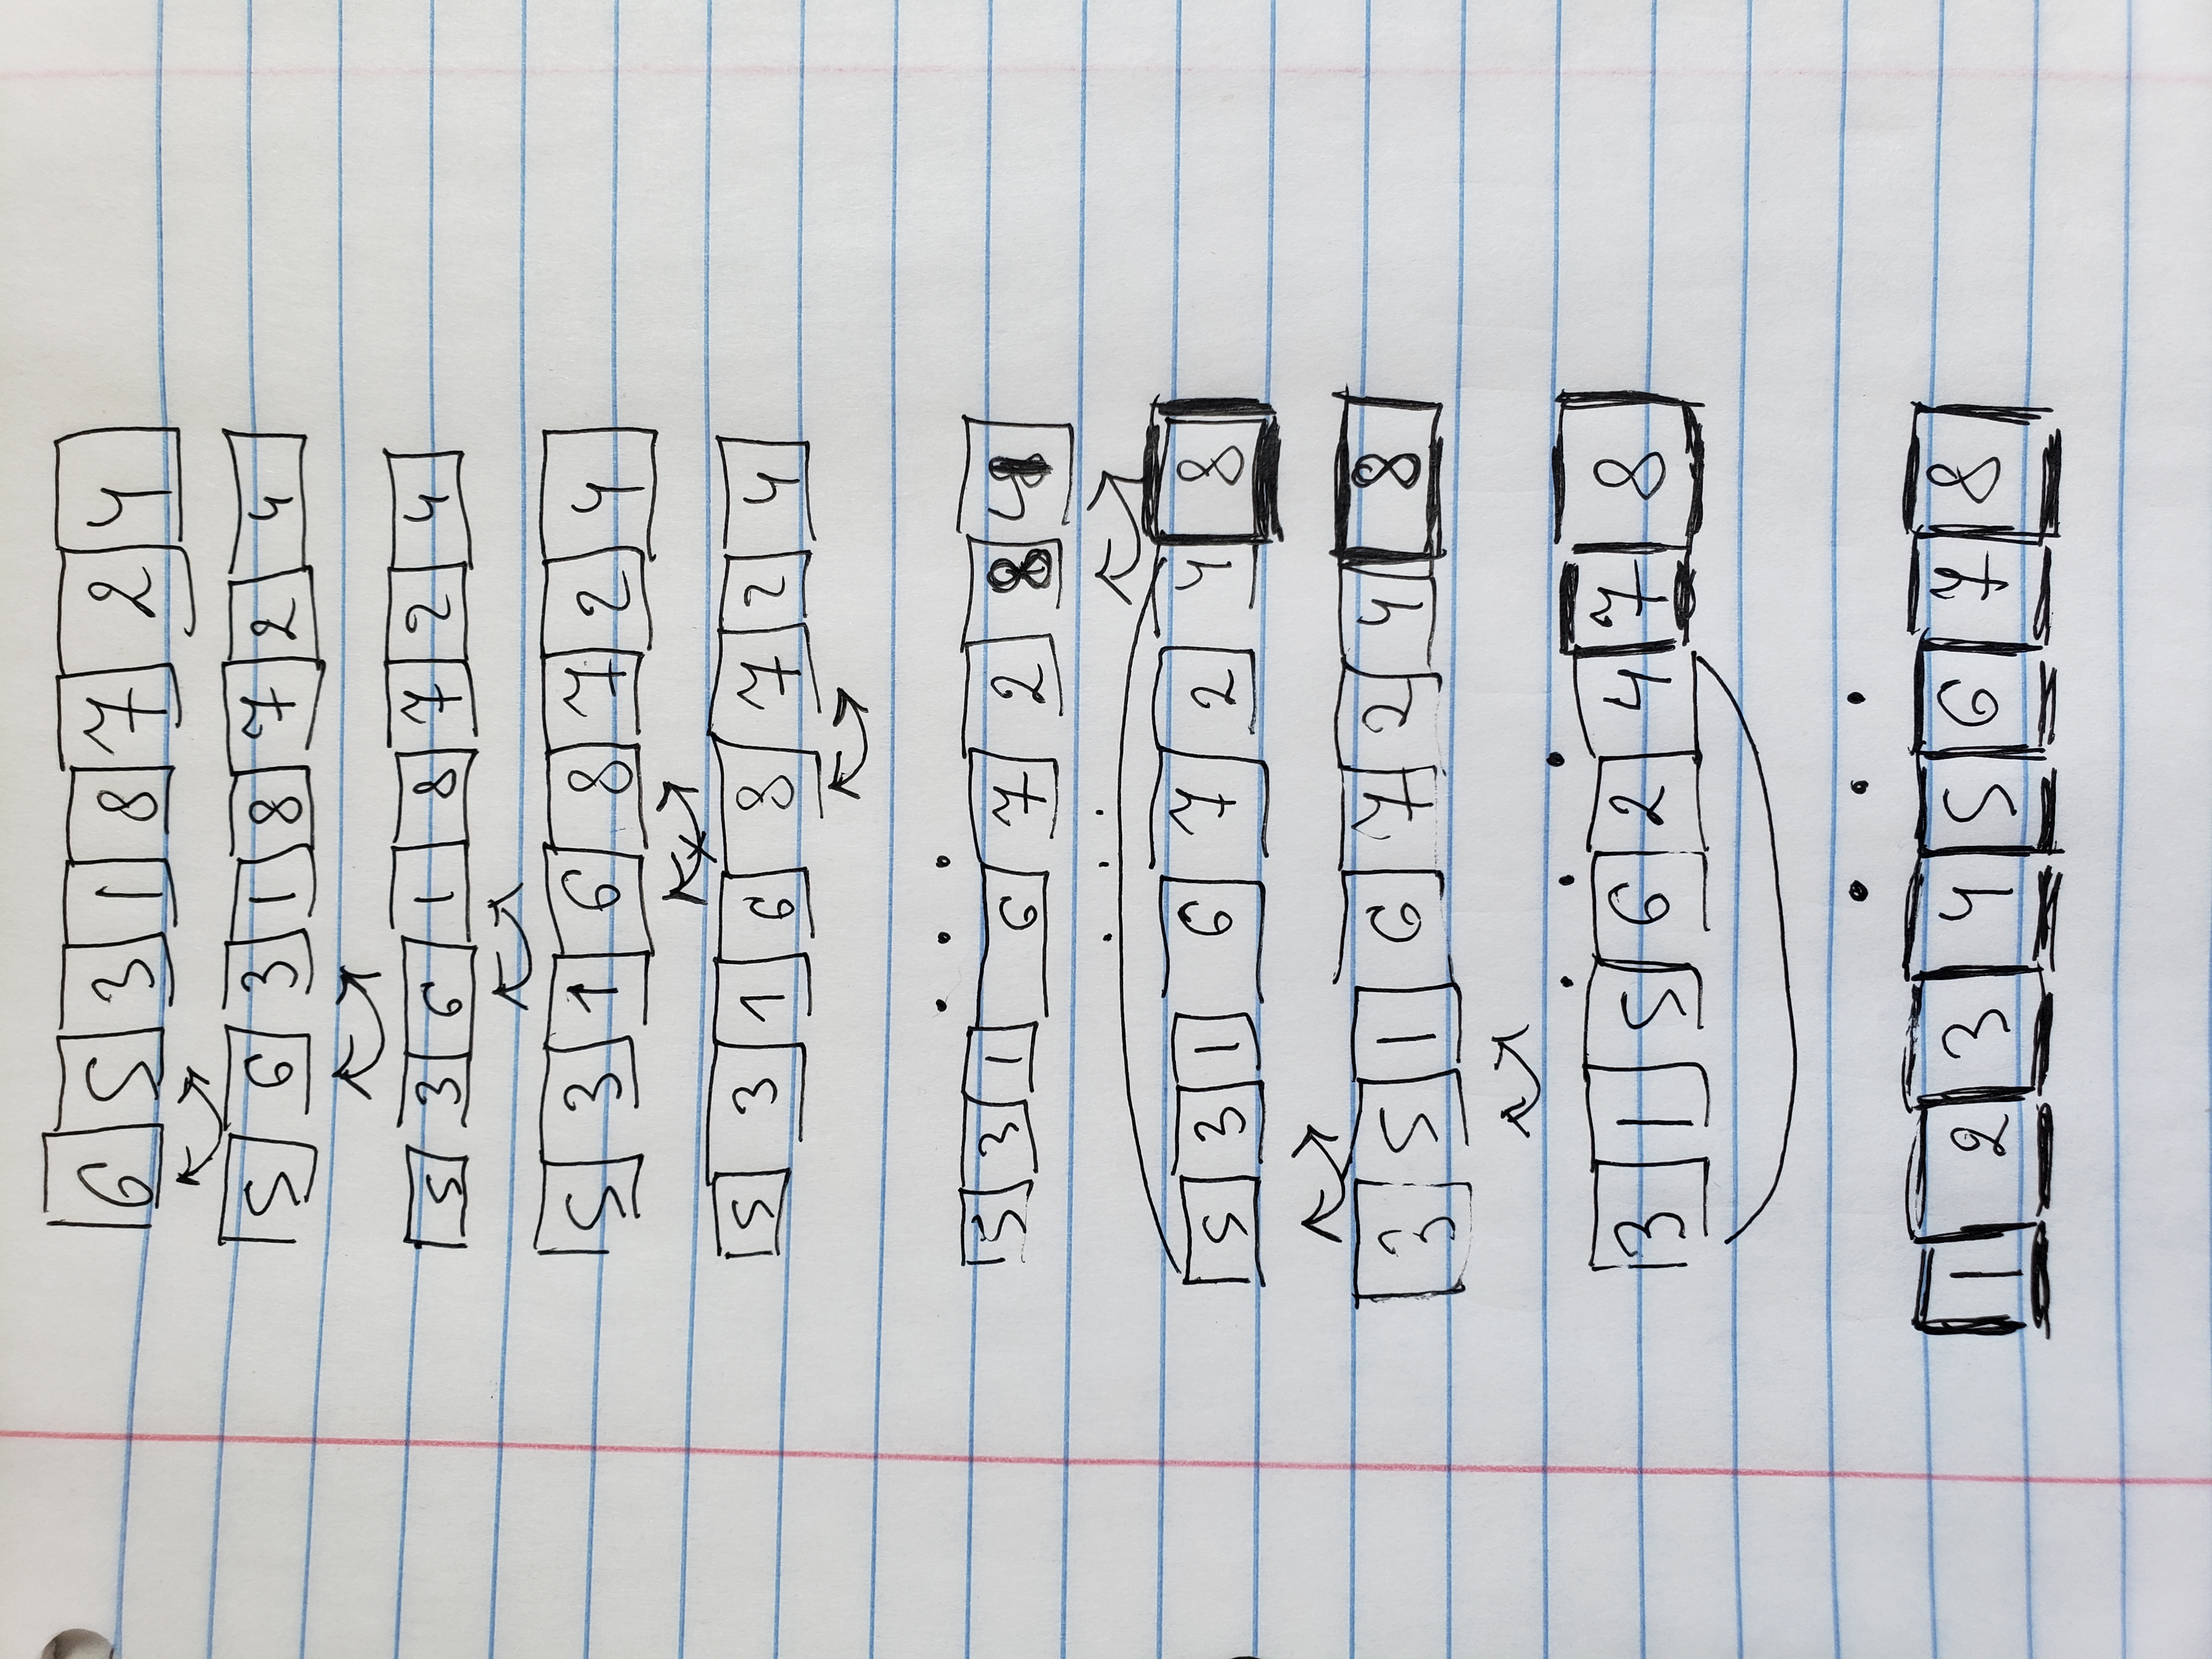 6 5 3 1 8 7 2 4
5 6 3 1 8 7 2 4
5 3 6 1 8 7 2 4
5 3 1 6 8 7 2 4
5 3 1 6 8 7 2 4
. . .
5 3 1 6 7 2 8 4
. . .
5 3 1 6 7 2 4 8
3 5 1 6 7 2 4 8
. . .
3 1 5 6 2 4 7 8
. . .
1 2 3 4 5 6 7 8